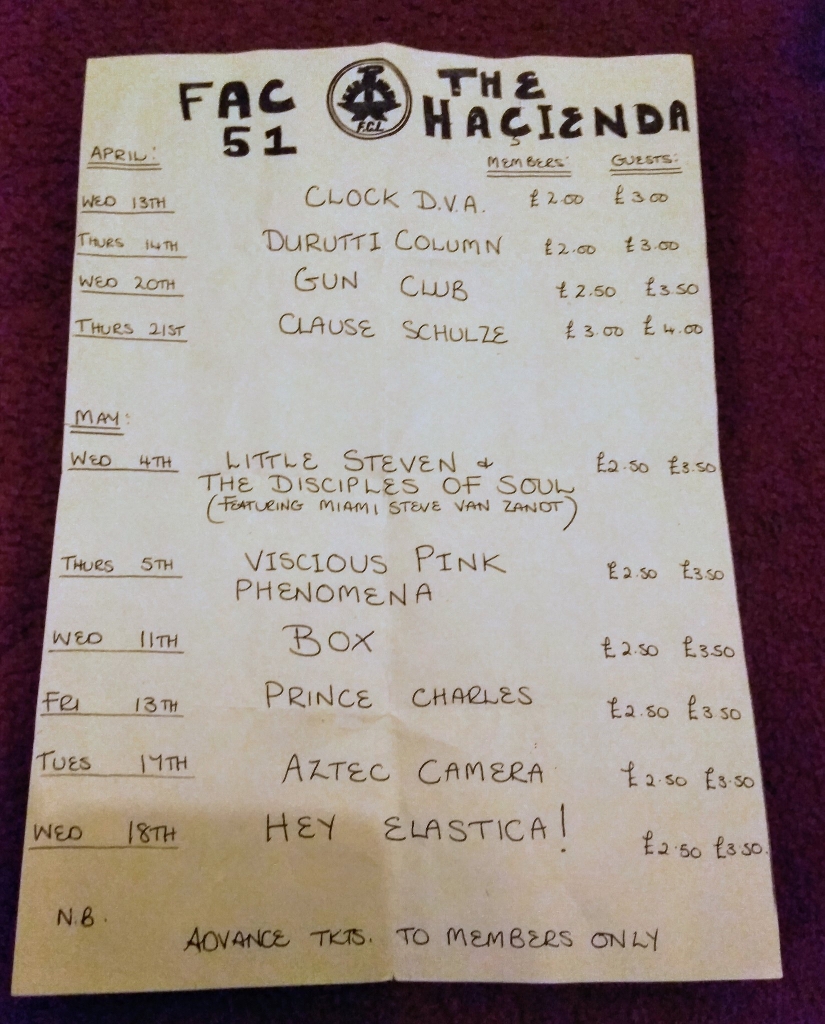 FAC 51 F.C.L. THE HAÇIENDA
APRIL: MEMBERS: GUESTS:
WED 13TH CLOCK D.V.A. £2.00 £3.00
THURS 14TH DURUTTI COLUMN £2.00 £3.00
WED 20TH GUN CLUB £2.50 £3.50
THURS 21ST CLAUSE SCHULZE £3.00 £4.00
MAY:
WED 4TH LITTLE STEVEN & £2.50 £3.50
THE DISCIPLES OF SOUL
(FEATURING MIAMI STEVE VAN ZANDT)
THURS 5TH VISCIOUS PINK £2.50 £3.50
PHENOMENA
WED 11TH BOX £2.50 £3.50
FRI 13TH PRINCE CHARLES £2.50 £3.50
TUES 17TH AZTEC CAMERA £2.50 £3.50
WED 18TH HEY ELASTICA! £2.50 £3.50.
N.B.
ADVANCE TKTS. TO MEMBERS ONLY